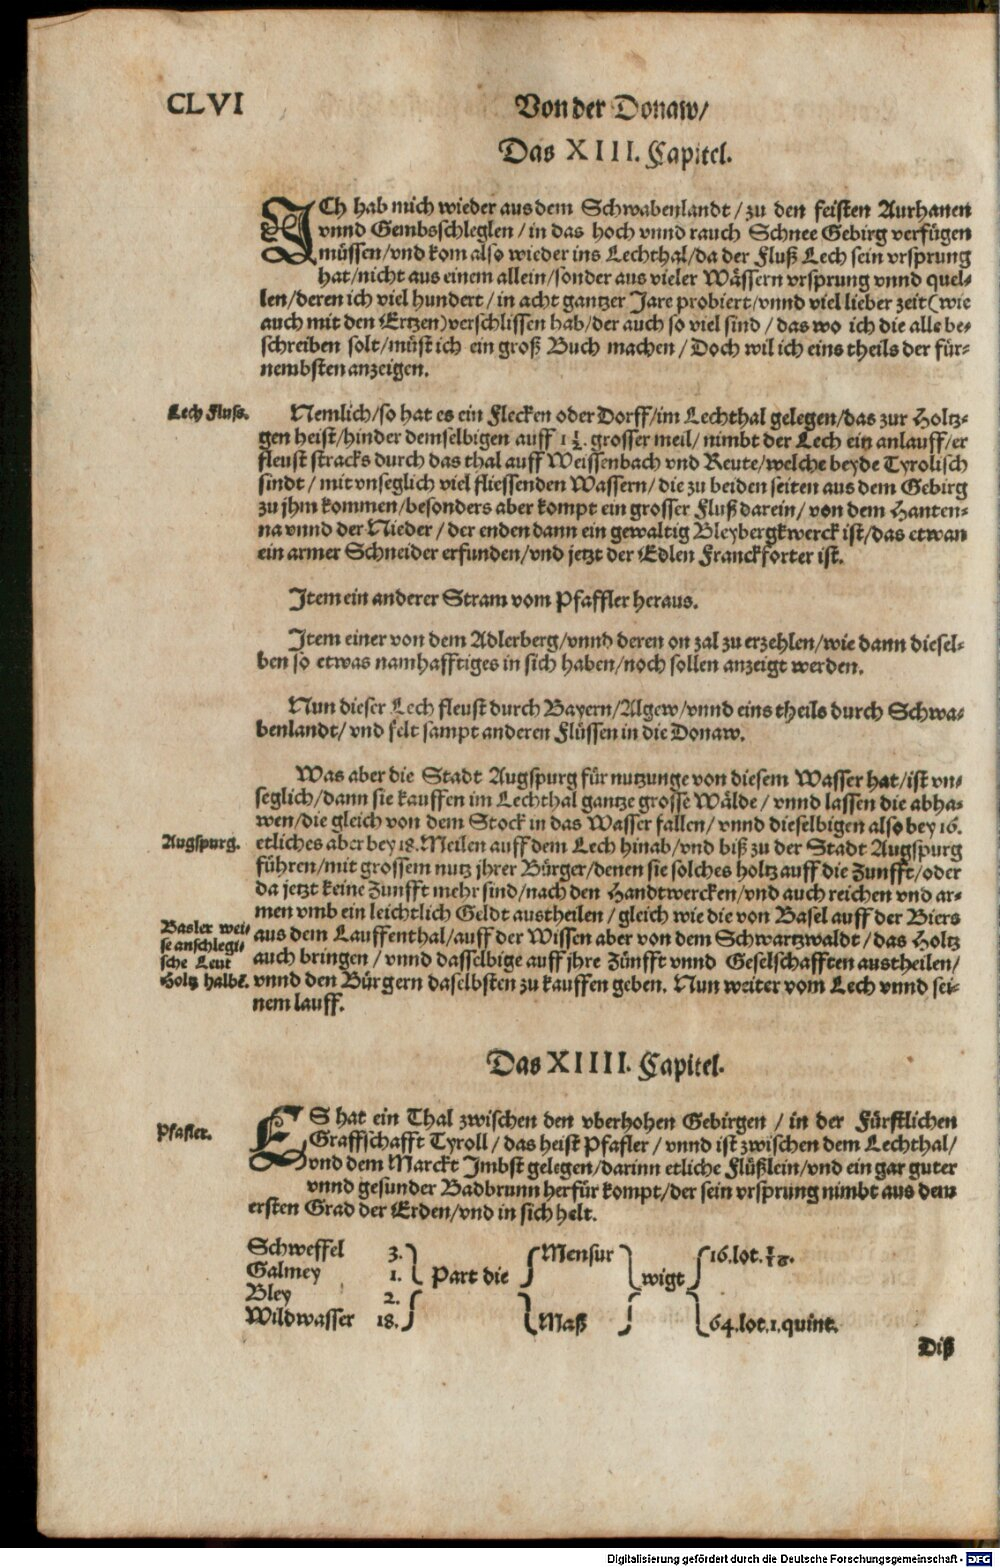 CLVI
Von der Donaw/
Das XIII. Capitel.
ICh hab mich wieder aus dem Schwabenlandt/zu den feisten Aurhanen
vnnd Gembsschleglen/in das hoch vnnd rauch Schnee Gebirg verfügen
müssen/vnd kom also wieder ins Lechthal/da der Fluß Lech sein vrsprung
hat/nicht aus einem allein/sonder aus vieler Wässern vrsprung vnnd quel-
len/deren ich viel hundert/in acht gantzer Jare probiert/vnnd viel lieber zeit(wie
auch mit den Ertzen)verschlissen hab/der auch so viel sind/das wo ich die alle be-
schreiben solt/müst ich ein groß Buch machen/Doch wil ich eins theils der für-
nembsten anzeigen.
Lech Fluss.
Nemlich/so hat es ein Flecken oder Dorff/im Lechthal gelegen/das zur Holtz-
gen heist/hinder demselbigen auff 1 ½. grosser meil/nimbt der Lech ein anlauff/er
fleust stracks durch das thal auff Weissenbach vnd Reute/welche beyde Tyrolisch
sindt/mit vnseglich viel fliessenden Wassern/die zu beiden seiten aus dem Gebirg
zu jhm kommen/besonders aber kompt ein grosser Fluß darein/von dem Hanten-
na vnnd der Nieder/der enden dann ein gewaltig Bleybergkwerck ist/das etwan
ein armer Schneider erfunden/vnd jetzt der Edlen Franckforter ist.
Item ein anderer Stram vom Pfaffler heraus.
Item einer von dem Adlerberg/vnnd deren on zal zu erzehlen/wie dann diesel-
ben so etwas namhafftiges in sich haben/noch sollen anzeigt werden.
Nun dieser Lech fleust durch Bayern/Algew/vnnd eins theils durch Schwa-
benlandt/vnd felt sampt anderen Flüssen in die Donaw.
Was aber die Stadt Augspurg für nutzunge von diesem Wasser hat/ist vn-
seglich/dann sie kauffen im Lechthal gantze grosse Wälde/vnnd lassen die abha-
wen/die gleich von dem Stock in das Wasser fallen/vnnd dieselbigen also bey 16.
Augspurg.
etliches aber bey 18. Meilen auff dem Lech hinab/vnd biß zu der Stadt Augspurg
führen/mit grossem nutz jhrer Bürger/denen sie solches holtz auff die Zunfft/oder
da jetzt keine Zunfft mehr sind/nach den Handtwercken/vnd auch reichen vnd ar-
men vmb ein leichtlich Geldt austheilen/gleich wie die von Basel auff der Biers
Basler wei-
se anschlegi-
sche Leut
Holtz halbē.
aus dem Lauffenthal/auff der Wissen aber von dem Schwartzwaldt/das Holtz
auch bringen/vnnd dasselbige auff jhre Zünfft vnnd Geselschafften austheilen/
vnnd den Bürgern daselbsten zu kauffen geben. Nun weiter vom Lech vnnd sei-
nem lauff.
Das XIIII. Capitel.
Pfafler.
ES hat ein Thal zwischen den vberhohen Gebirgen/in der Fürstlichen
Graffschafft Tyroll/das heist Pfafler/vnnd ist zwischen dem Lechthal/
vnd dem Marckt Imbst gelegen/darinn etliche Flüßlein/vnd ein gar guter
vnnd gesunder Badbrunn herfür kompt/der sein vrsprung nimbt aus dem
ersten Grad der Erden/vnd in sich helt.
Schweffel 3. Mensur 16.lot.
Galmey 1. Part die wigt
Bley 2.
Wildwasser 18. Maß 64.lot.1.quint.
Diß
Digitalisierung gefördert durch die Deutsche Forschungsgemeinschaft - DFG